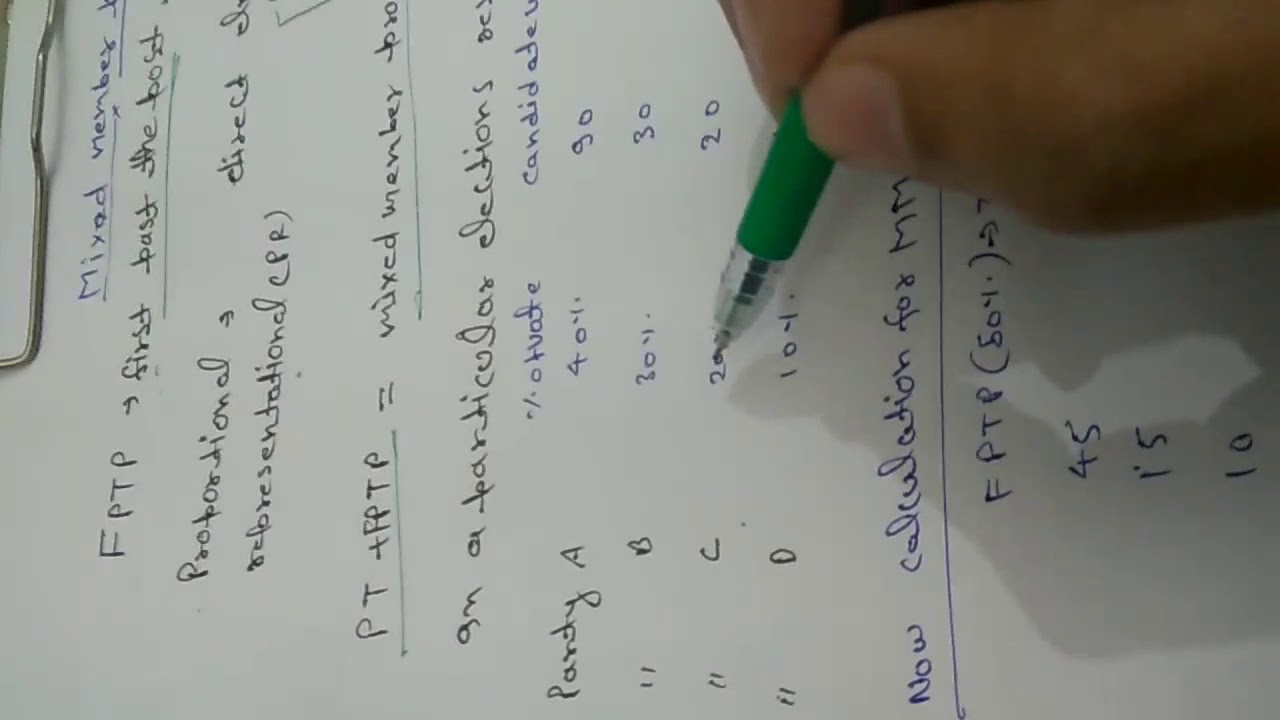 Mixed member
FPTP → first past the post
Proportional → direct
representational (PR)
PT + FPTP = mixed member pro
In a particular elections res
% of vote candidate
Party A 40% 90
" B 30% 30
" C 20 20
" D 10%
Now calculation for MM
FPTP (50%) →
45
15
10